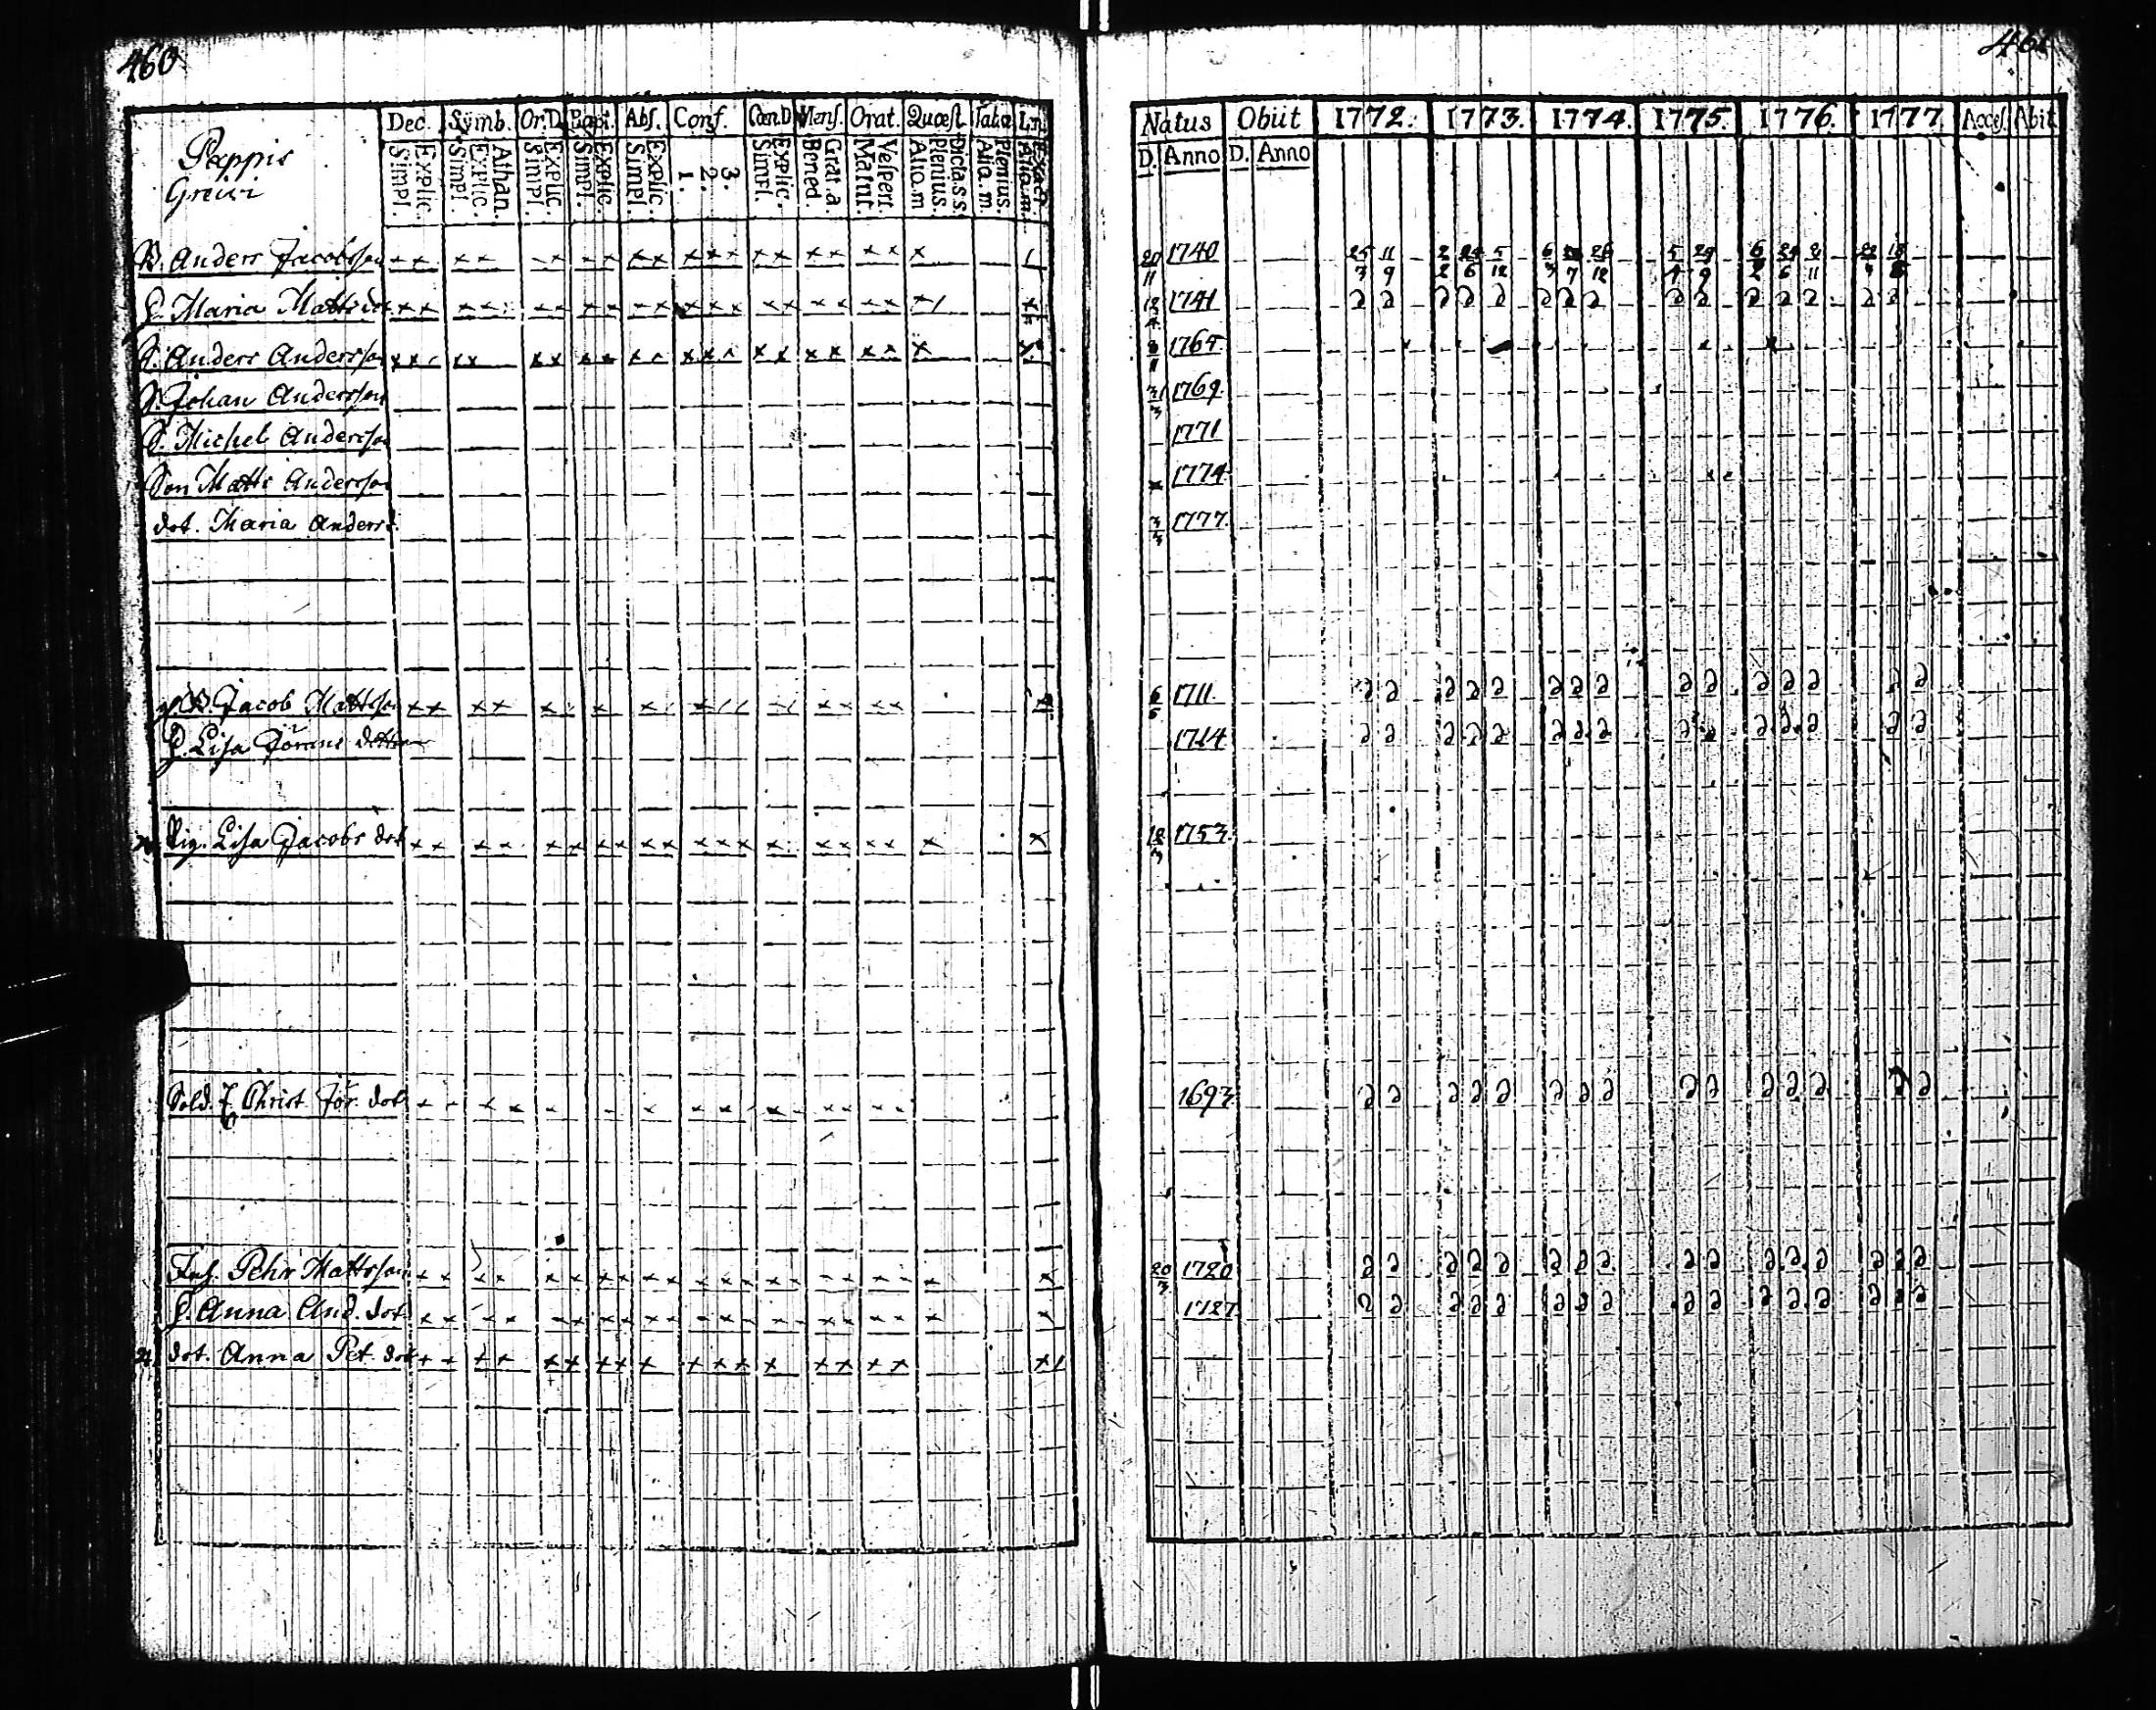 460
461
Pappis
Greivi
Dec. Symb. Or.D. Bapt. Abs. Conf. Cœn.D Mens. Orat. Quæst Tabu
Simpl. Explic. Simpl. Explic. Athan. Simpl. Explic. Simpl. Explic. Simpl. Explic. 1. 2. 3. Simpl. Explic. Bened. Grat. a. Matut. Vespert. Alio.m Plenius. Dicta s.s. Aliq.m. Plenius.
Natus Obiit 1772. 1773. 1774. 1775. 1776. 1777. Acces. Abit
D. Anno D. Anno
B. Anders Jacobsson 20/11 1740 25/3 11/9 2/2 24/6 5/12 6/3 7 26/12 5/4 24/9 6/2 29/6 8/11 22 18
H. Maria Matts dot 1741
S. Anders Andersson 1765
S. Johan Andersson 1769.
S. Michel Andersson 1771
Son Matts Andersson 1774
dot. Maria Anders d. 3/3 1777.
B. Jacob Mattsson 6/5 1711.
H. Lisa Jörans dotter 1714
Pig. Lisa Jacobs dot 18/3 1753.
Sold. E. Christ. Jör. dot 1693
Inh. Pehr Mattsson 20/3 1720
H. Anna And. dot 1727.
dot. Anna Pet. dot